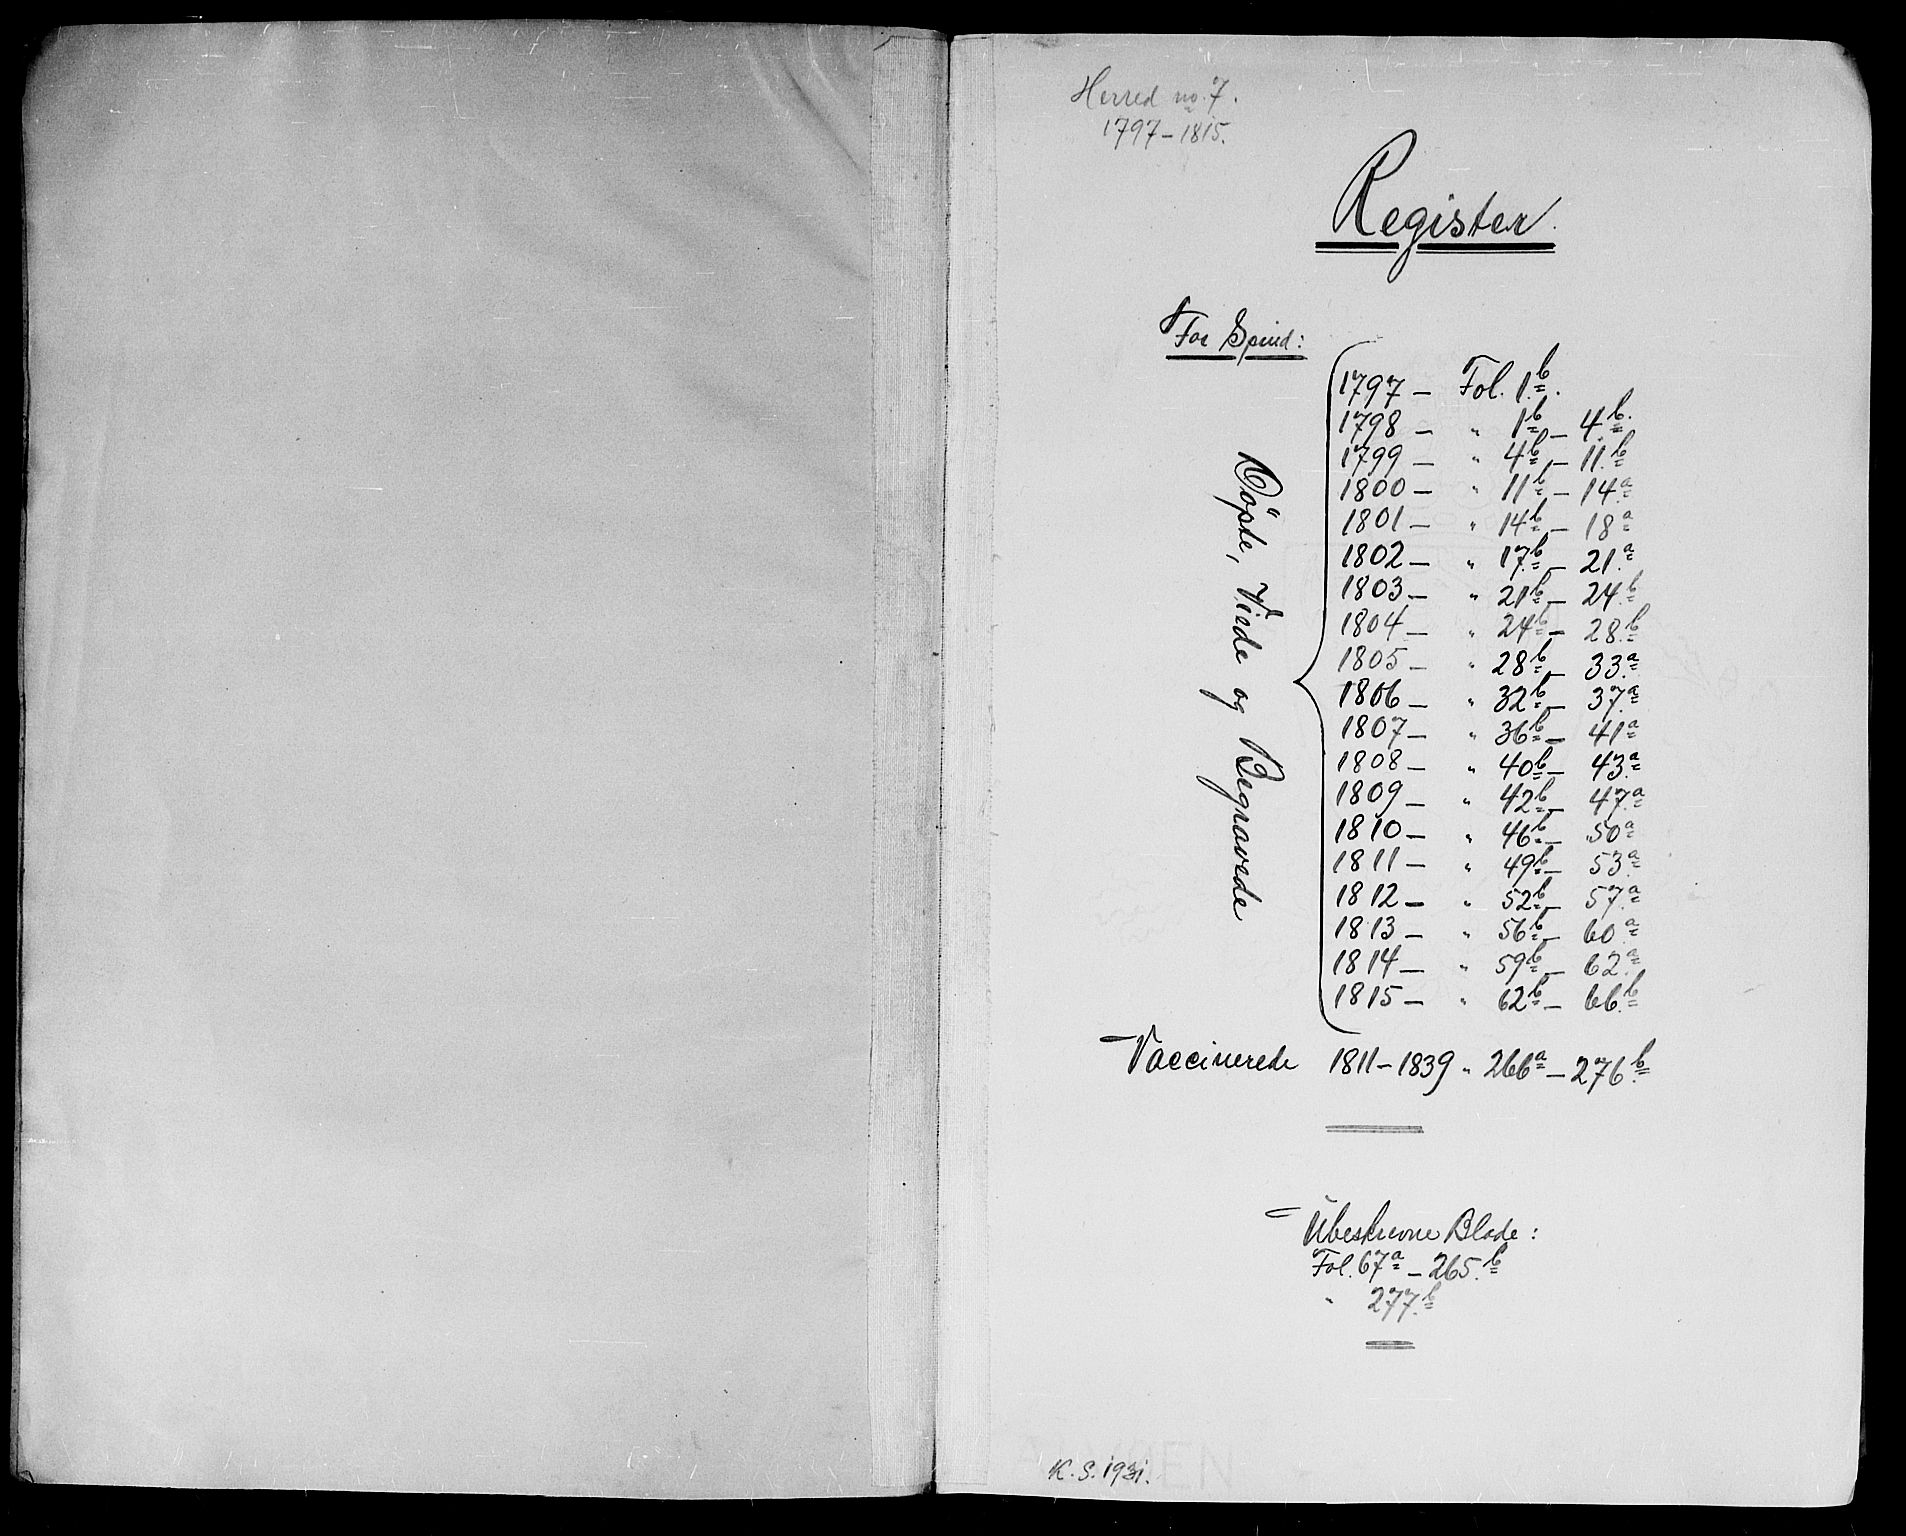 Herred no. 7.
1797-1815.
Register.
For Spind:
Döpte, Viede og Begravede
1797 — Fol. 1b.
1798 — " 1b — 4b.
1799 — " 4b — 11b.
1800 — " 11b — 14a.
1801 — " 14b — 18a
1802 — " 17b — 21a.
1803 — " 21b — 24b.
1804 — " 24b — 28b.
1805 — " 28b — 33a.
1806 — " 32b — 37a.
1807 — " 36b — 41a
1808 — " 40b — 43a.
1809 — " 42b — 47a.
1810 — " 46b — 50a
1811 — " 49b — 53a.
1812 — " 52b — 57a.
1813 — " 56b — 60a
1814 — " 59b — 62a.
1815 — " 62b — 66b.
Vaccinerede 1811-1839 " 266a — 276b.
Ubeskrevne Blade:
Fol. 67a — 265b.
" 277b.
K. S. 1931.